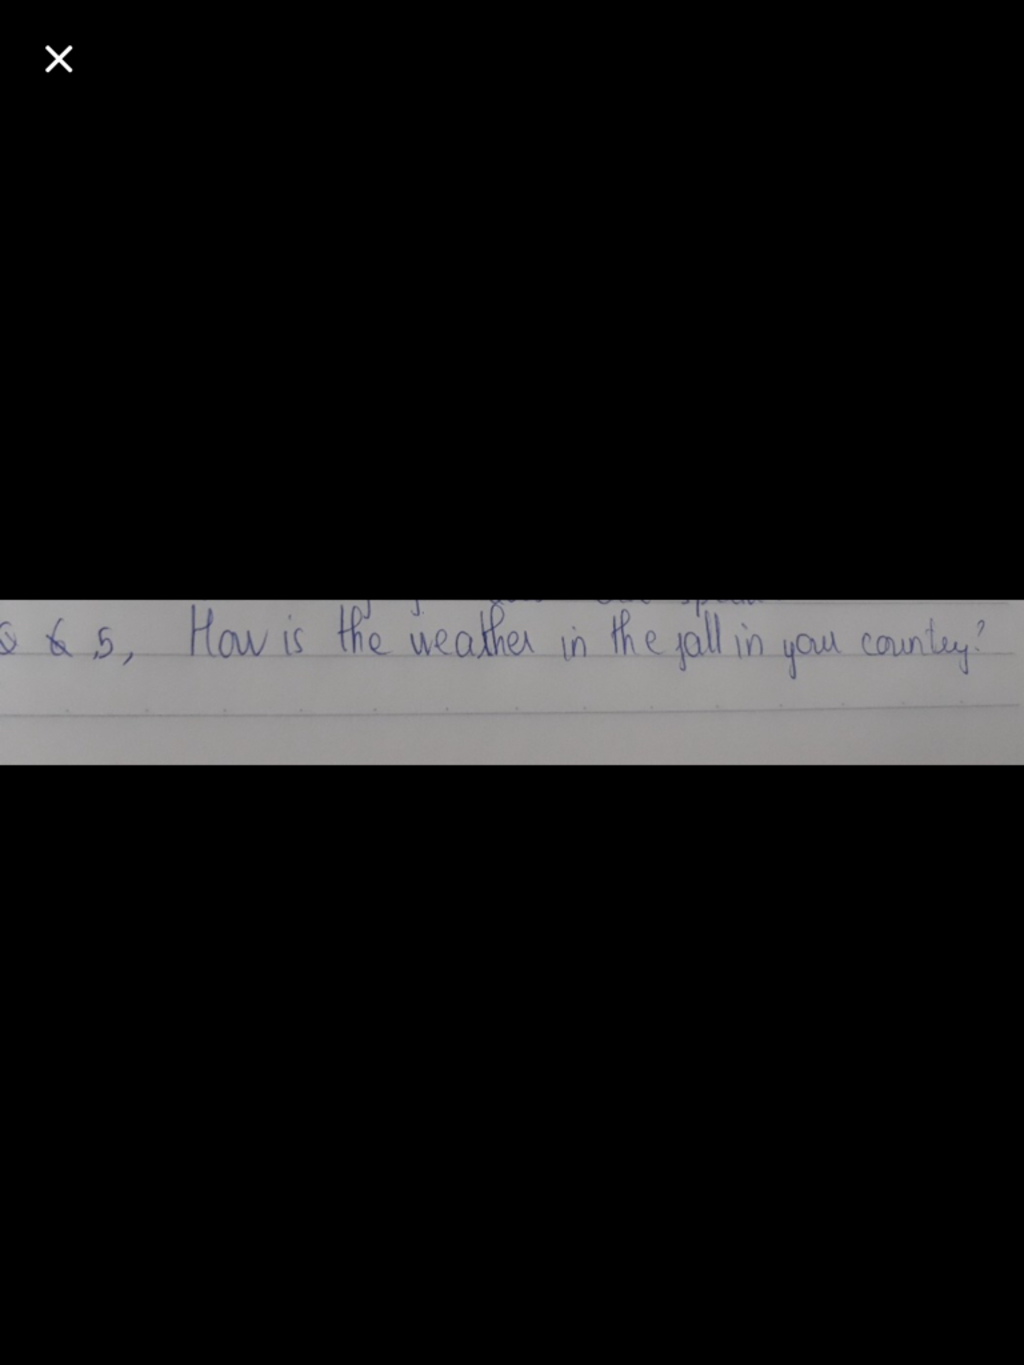 5, How is the weather in the fall in your country?